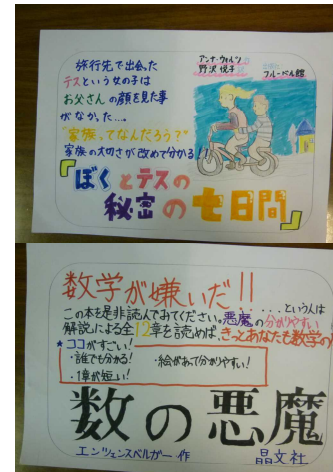 旅行先で出会った
テスという女の子は
お父さんの顔を見た事
がなかった…。
"家族、てなんだろう?"
家族の大切さが改めて分かる!!
アンナ・ウォルツ
野沢 佳子
フレーベル館
『ぼくとテスの
秘密の七日間』
数学が嫌いだ!!
.....という人は
この本を是非読んでみてください。悪魔の分かりやすい
解説による全12章を読めば、きっとあなたも数学の
★ココがすごい!
・誰でも分かる!
・絵があって分かりやすい!
・1章が短い!
数の悪魔
エンツェンスベルガー 作
晶文社